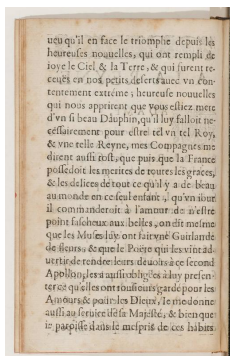 ueu qu'il en face le triomphe depuis les
heureuses nouuelles, qui ont rempli de
ioye le Ciel & la Terre, & qui furent re-
ceuës en nos petits deserts auec vn con-
tentement extréme; heureuse nouuelles
qui nous apprirent que vous estiez mere
d'vn si beau Dauphin, qu'il luy falloit ne-
cessairement pour estre tel vn tel Roy,
& vne telle Reyne, mes Compagnes me
dirent aussi tost, que puis que la France
possedoit les merites de toutes les graces,
& les delices de tout ce qu'il y a de beau
au monde en ce seul enfant, qu'vn iour
il commanderoit à l'amour de n'estre
point fascheux aux belles, on dit mesme
que les Muses luy ont fait vne Guirlande
de fleurs, & que le Poëte qui les vint ad-
uertir de rendre leurs deuoirs à ce second
Apollon, les a aussi obligées à luy presen-
ter ce qu'elles ont tousiours gardé pour les
Amours & pour les Dieux, Ie me donne
aussi au seruice de sa Majesté, & bien que
ie paroisse dans le mespris de ces habits